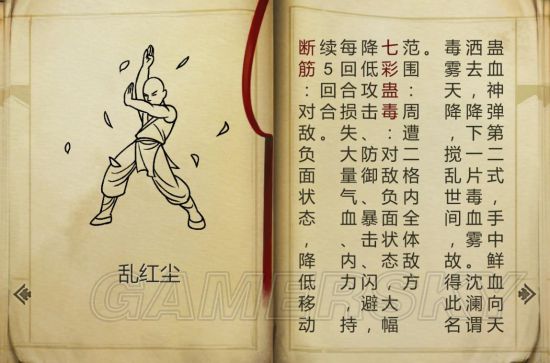 乱红尘
蛊血神弹第二式，手中鲜血向天
洒去，降下一片毒血雾。沈澜谓
毒雾天降，搅乱世间，故得此名
。
范围：周遭二格内全体敌方
七彩蛊毒：对敌负面状态，大幅
降低攻击、防御、暴击、闪避，
每回合损失大量气、血、内力，持
续5回合。
断筋：对敌负面状态，降低移动
GAMERSKY